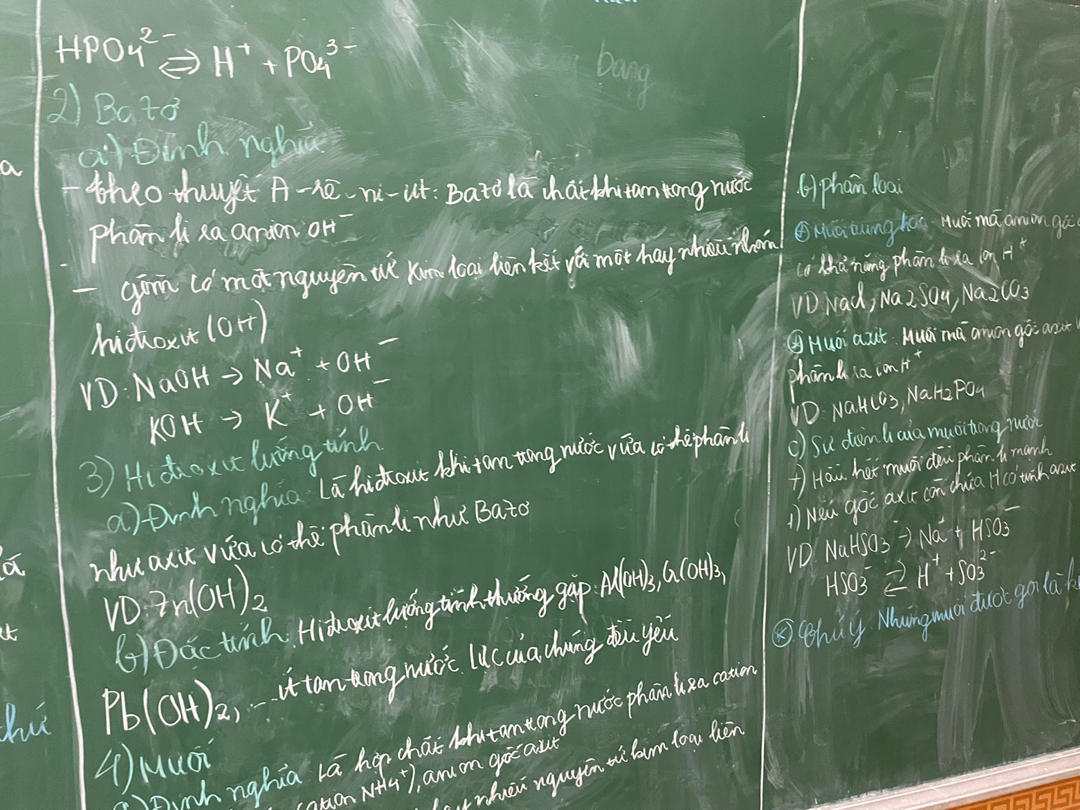 HPO₄²⁻ ⇌ H⁺ + PO₄³⁻
2) Bazơ
a) Định nghĩa
- theo thuyết A-rê-ni-ut: Bazơ là chất khi tan trong nước
phân li ra anion OH⁻
- gồm có một nguyên tử kim loại liên kết với một hay nhiều nhóm
hiđroxit (OH)
VD: NaOH → Na⁺ + OH⁻
KOH → K⁺ + OH⁻
3) Hiđroxit lưỡng tính
a) Định nghĩa: Là hiđroxit khi tan trong nước vừa có thể phân li
như axit vừa có thể phân li như Bazơ
VD: Zn(OH)₂
b) Đặc tính: Hiđroxit lưỡng tính thường gặp: Al(OH)₃, Cr(OH)₃,
Pb(OH)₂, ... ít tan trong nước. Lực của chúng đều yếu
4) Muối
a) Định nghĩa Là hợp chất khi tan trong nước phân li ra cation
cation NH4⁺), anion gốc axit
nhiều nguyên tử kim loại liên
b) phân loại
Muối trung hoà: Muối mà anion gốc
có khả năng phân li ra ion H⁺
VD: NaCl, Na2SO4, Na2CO3
Muối axit: Muối mà anion gốc axit
phân li ra ion H⁺
VD: NaHCO3, NaH2PO4
c) Sự điện li của muối trong nước
+) Hầu hết muối đều phân li mạnh
+) Nếu gốc axit còn chứa H có tính axit
VD: NaHSO3 → Na⁺ + HSO3⁻
HSO3⁻ ⇌ H⁺ + SO3²⁻
Chú ý: Những muối được gọi là